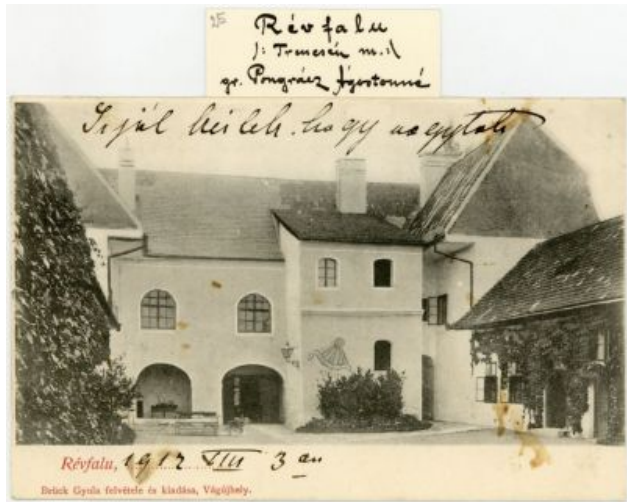 25
Révfalu
/: Trencsén m. :/
gr. Pongrácz Ágostonné
hogy
Révfalu, 1912 VIII 3 án
Brück Gyula felvétele és kiadása, Vágújhely.